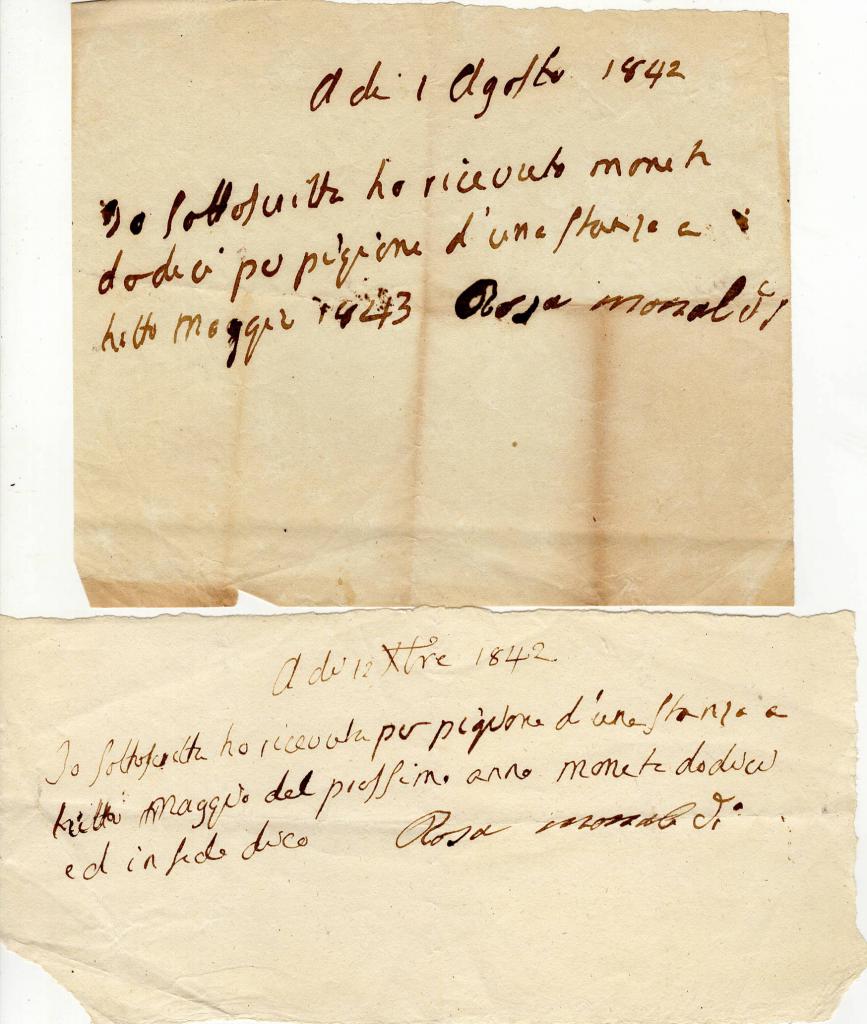 A di 1 Agosto 1842
Io Sottoscritta ho ricevuto monete
dodeci per pigione d'una stanza a
tutto Maggio 1843 Rosa monaldi
A di 12 Xbre 1842
Io Sottoscritta ho ricevuta per pigione d'una stanza a
tutto Maggio del prossimo anno monete dodici
ed in fede dico Rosa monaldi